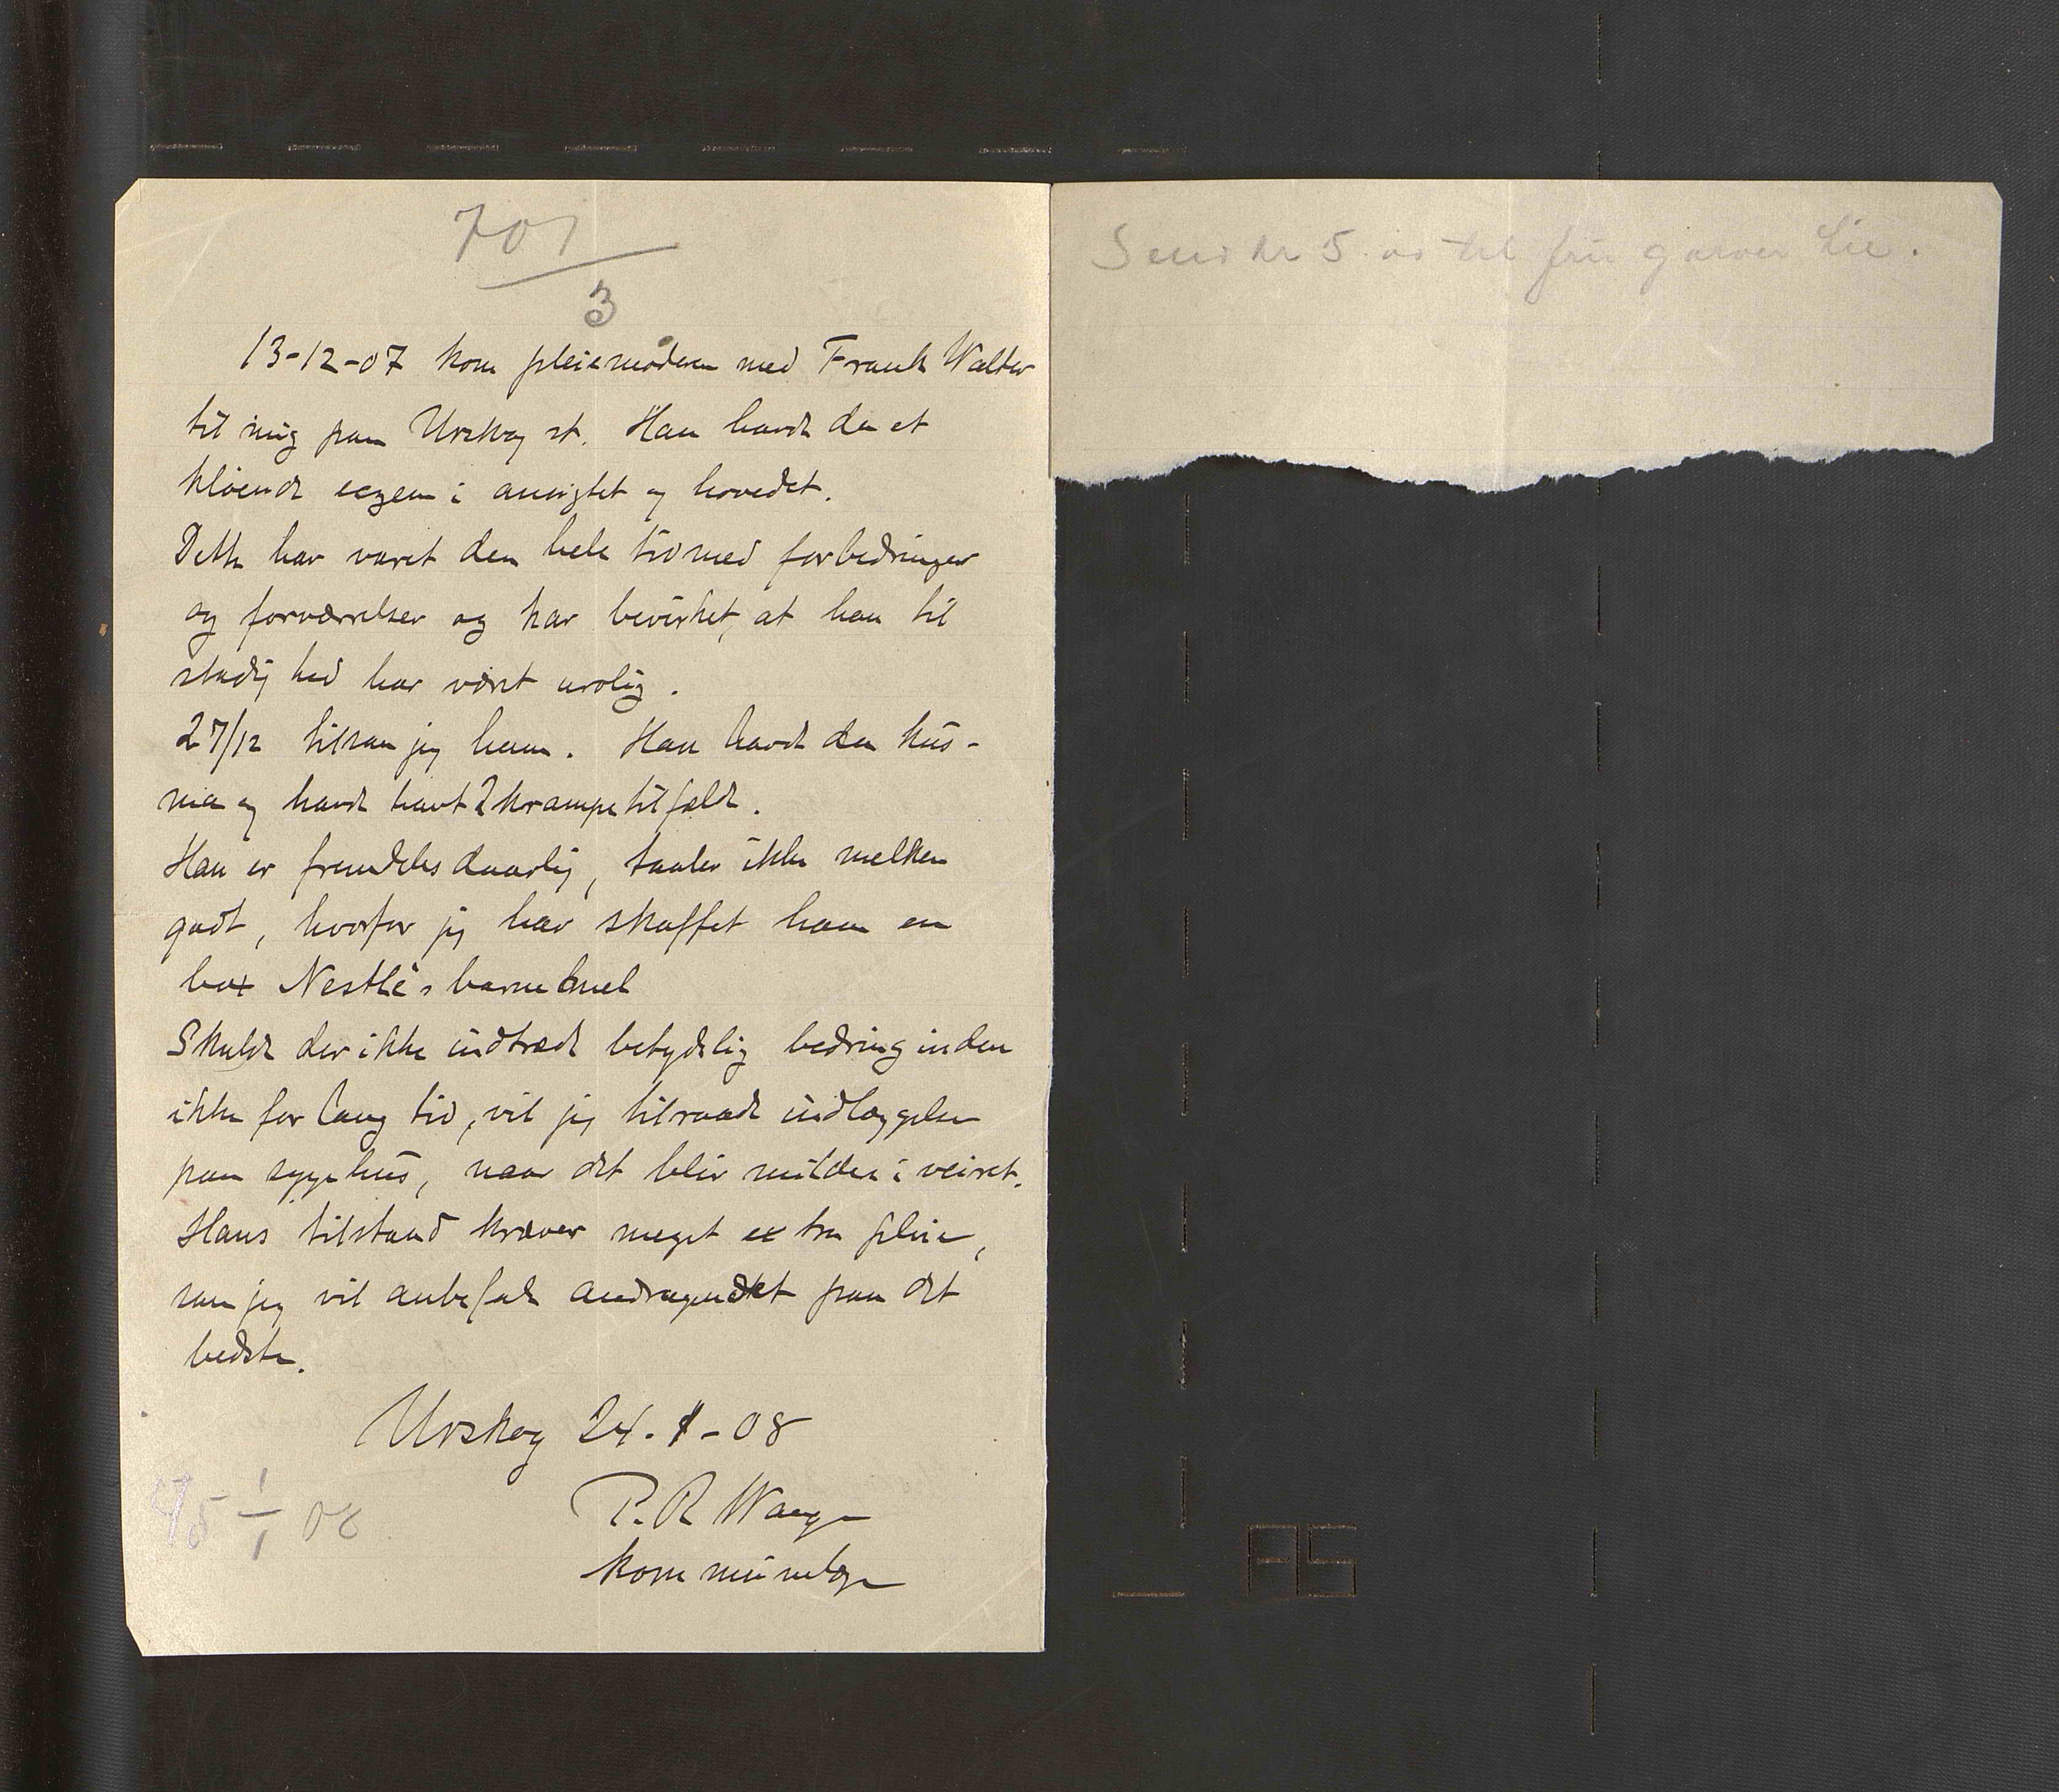 701
3
13-12-07 kom pleiemoderen med Frank Walter
til mig paa Urskog st. Han havde da et
kløende eczem i ansigtet og hovedet.
Dette har været den hele tid med forbedringer
og forværrelser og har bevirket, at han til
stadighed har været urolig.
27/12 tilsaa jeg ham. Han havde da kus-
ma og havde havt 2 krampetilfælde.
Han er fremdeles daarlig, taaler ikke melken
godt, hvorfor jeg har skaffet ham en
box Nestlé's barnemel
Skulde der ikke indtræde betydelig bedring inden
ikke for lang tid, vil jeg tilraade indlæggelse
paa sygehus, naar det blir mildere i veiret.
Hans tilstand kræver meget extra pleie,
saa jeg vil anbefale andragendet paa det
bedste.
Urskog 24-1-08
P. R. Waage
kommunelæge
1/1 08
Send kr 5.00 til fru garver Lie.